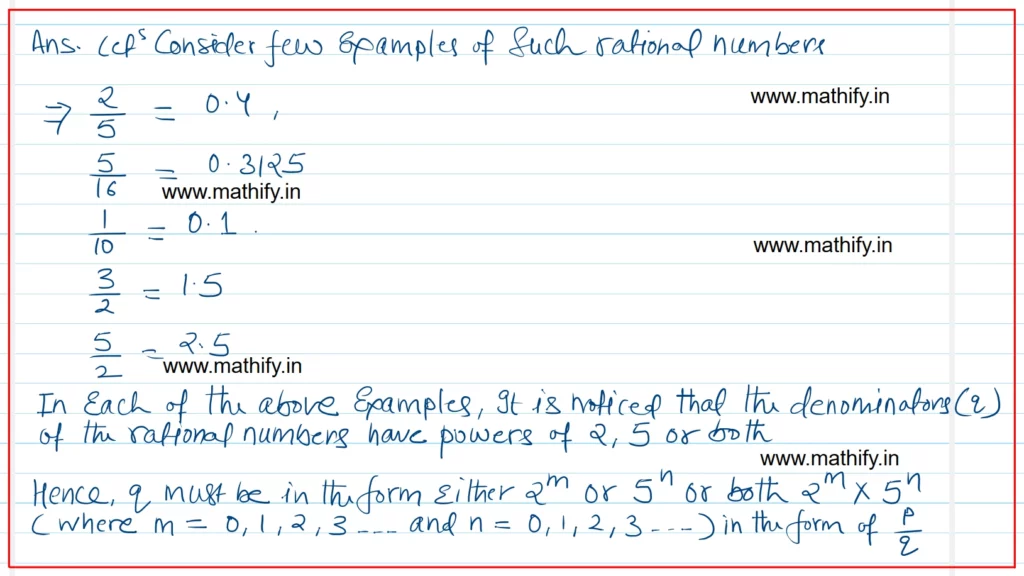 Ans. Let's Consider few Examples of Such rational numbers
www.mathify.in
⇒ 2/5 = 0.4,
5/16 = 0.3125
www.mathify.in
1/10 = 0.1.
www.mathify.in
3/2 = 1.5
5/2 = 2.5
www.mathify.in
In Each of the above Examples, It is noticed that the denominators (q)
of the rational numbers have powers of 2, 5 or both
www.mathify.in
Hence, q must be in the form Either 2^m or 5^n or both 2^m × 5^n
(where m = 0, 1, 2, 3 ---- and n = 0, 1, 2, 3 ----) in the form of p/q